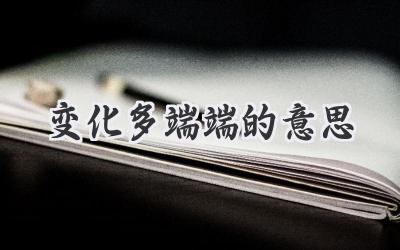 变化多端端的意思